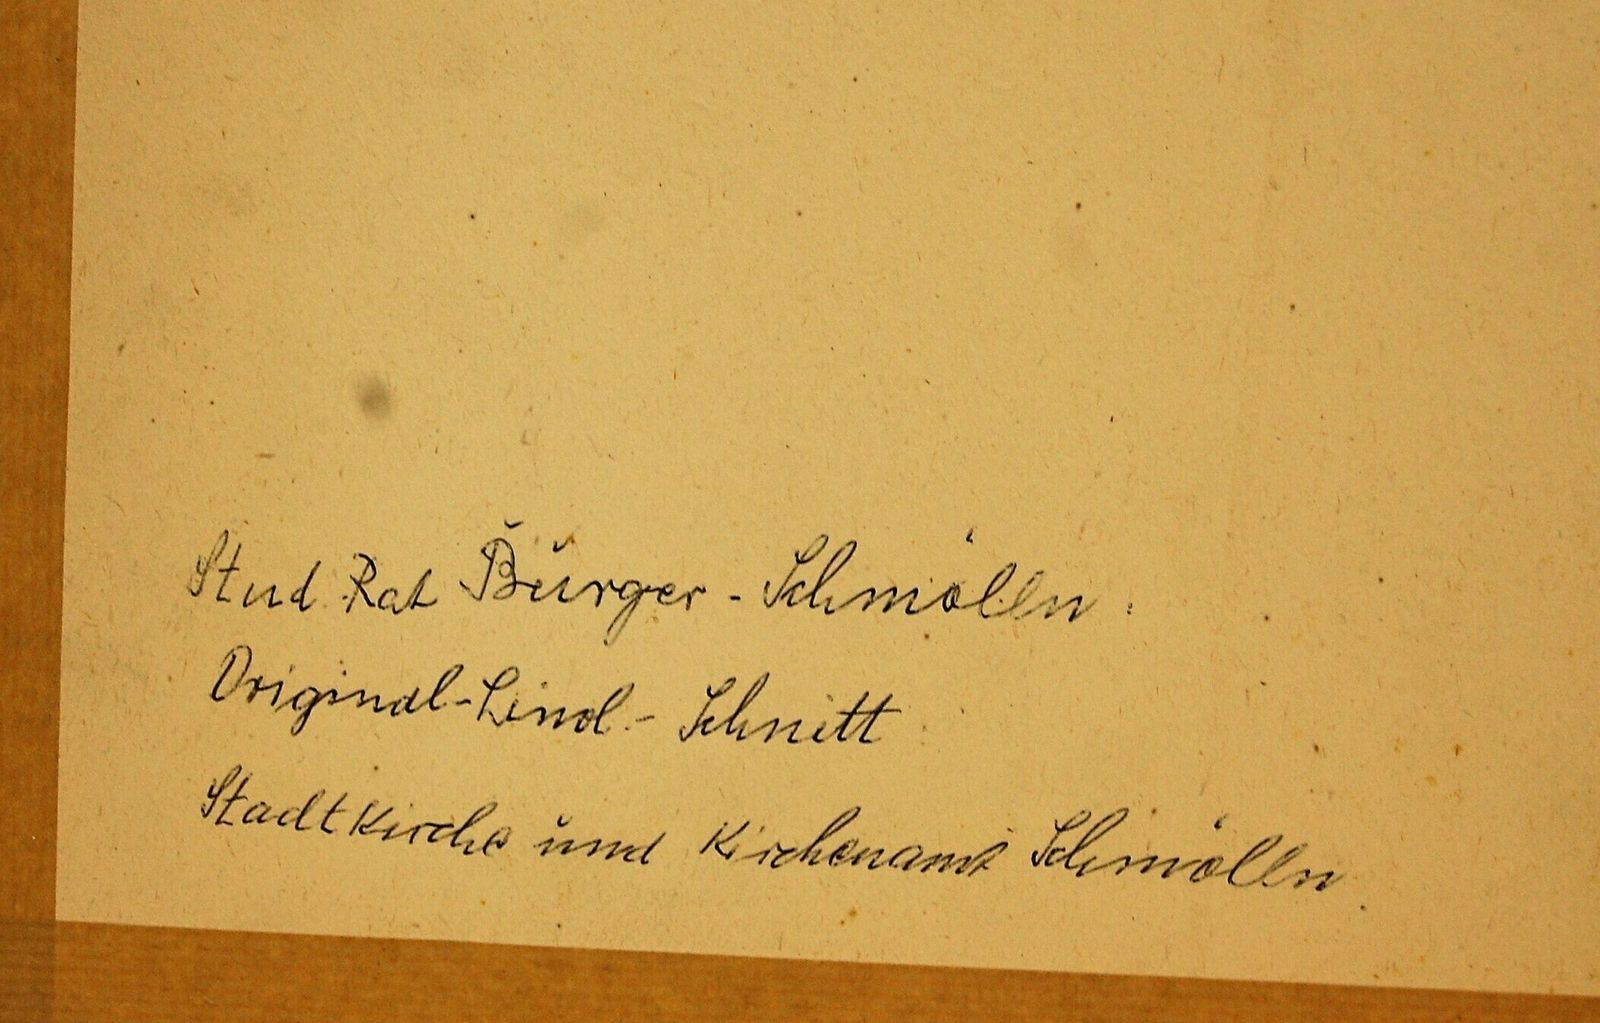 Stud. Rat Bürger - Schmölln.
Original-Linol-Schnitt
Stadtkirche und Kirchenamt Schmölln